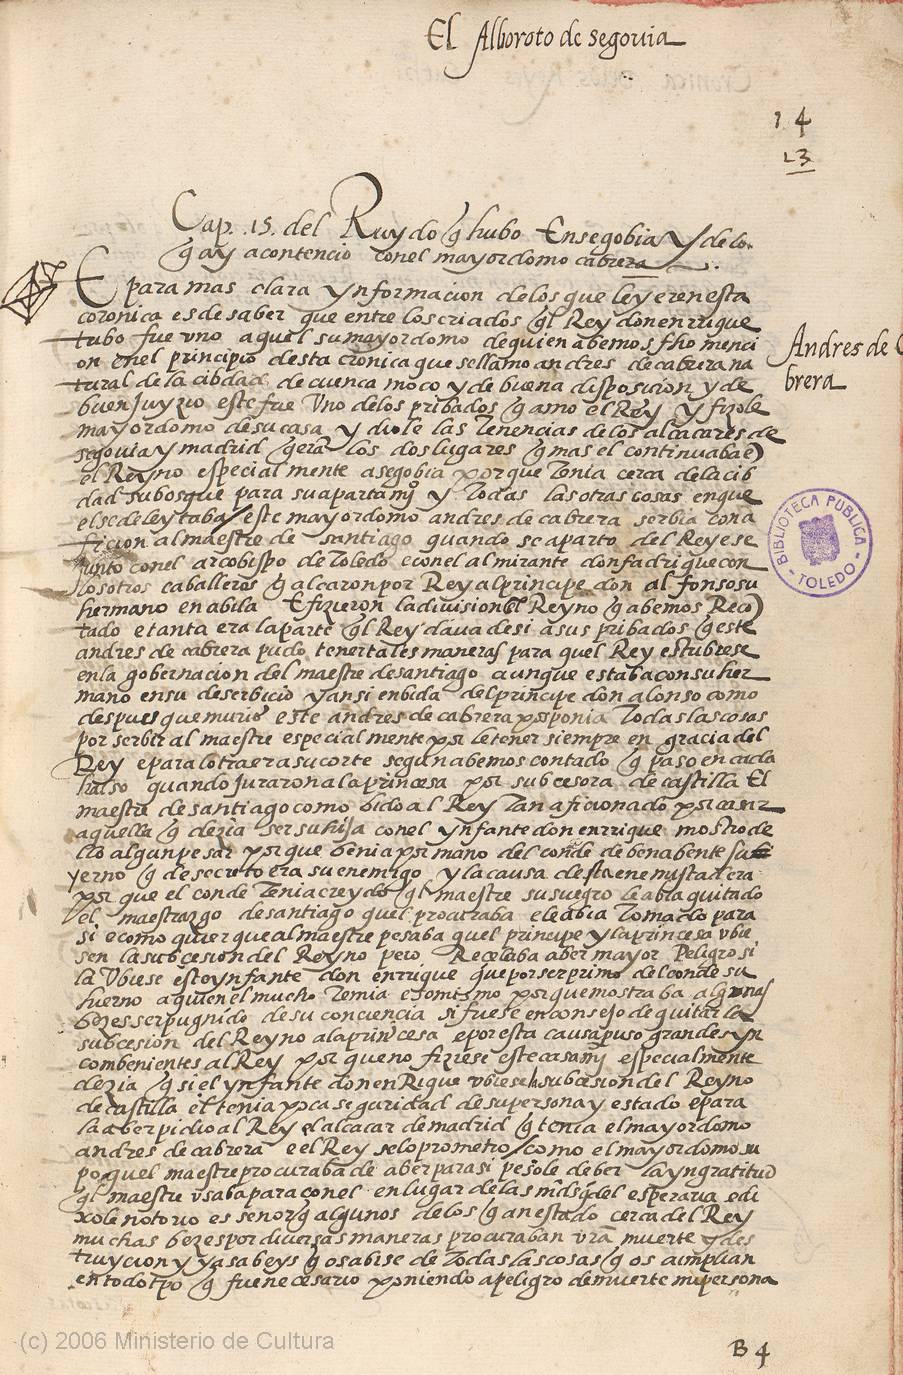 El Alboroto de segouia
14
23
Cap. 15. del Ruydo q hubo En segobia y de lo
q ay acontencio con el mayordomo cabrera
E para mas clara ynformacion de los que leyeren esta
coronica es de saber que entre los criados ql Rey don enrrique
tubo fue vno aquel su mayordomo de quien abemos fho menci
on en el principio desta cronica que se llamo andres de cabrera na
Andres de C
brera
tural de la cibdad de cuenca moço y de buena disposicion y de
buen juyzio este fue Vno de los pribados q amo el Rey y fizole
mayordomo de su casa y diole las Tenencias de los alcaçares de
segouia y madrid q erã los dos lugares q mas el continuaba e
el Reyno especialmente a segobia porque Tenia cerca de la cib
dad su bosque para su apartamyº y Todas las otras cosas en que
el se deleytaba / este mayordomo andres de cabrera serbia con a
ficion al maestre de santiago quando se aparto del Rey e se
junto con el arcobispo de Toledo e con el almirante don fadrique con
los otros caballeros q alcaron por Rey al principe don alfonso su
hermano en abila E fizieron la division el Reyno q abemos Reco
tado e tanta era la parte ql Rey daua de si a sus pribados q este
andres de cabrera pudo tener tales maneras para quel Rey estubiese
en la gobernacion del maestre de santiago aunque estaba con su her
mano en su deserbicio y ansi en bida del principe don alonso como
despues que murio este andres de cabrera posponia Todas las cosas
por serbir al maestre especialmente por le tener siempre en gracia del
Rey e para lo traer a su corte segun abemos contado q paso en cada
halso quando juraron a la princesa por subcesora de castilla El
maestre de santiago como bido al Rey Tan aficionado por casar
aquella q dezia ser su hija con el ynfante don enrrique mostro de
llo algun pesar porque benia por mano del conde de benabente su
yerno q de secreto era su enemigo y la causa desta enemistad era
por que el conde Tenia creydo ql maestre su suegro le abia quitado
el maestrazgo de santiago quel procuraba e le abia Tomado para
si e como quier que al maestre pesaba quel principe y la princesa vbie
sen la subcesion del Reyno pero Recelaba aber mayor Peligro si
la Vbiese esto ynfante don enrrique que por ser primo del conde su
hierno a quien el mucho Temia e somismo porque mostraba algunas
bezes ser pugnido de su conciencia si fuese en consejo de quitar la
subcesion del Reyno a la princesa e por esta causa puso grandes yn
combenientes al Rey por que no fiziese este casamyº especialmente
dezia q si el ynfante don enRique vbiese la subcesion del Reyno
de castilla el tenia poca seguridad de su persona y estado e para
la aber pidio al Rey el alcacar de madrid q tenia el mayordomo
andres de cabrera e el Rey se lo prometio / como el mayordomo su
po quel maestre procuraba de aber para si pesole de ber la yngratitud
ql maestre vsaba para con el en lugar de las mds q del esperaua e di
xole notorio es señor q algunos de los q an estado cerca del Rey
muchas bezes por diversas maneras procuraban vrã muerte y des
truycion y ya sabeys q os abise de Todas las cosas q os aimplian
en todo tpo q fue necesario poniendo a peligro de muerte mi persona
BIBLIOTECA PUBLICA
- TOLEDO -
B 4
(c) 2006 Ministerio de Cultura